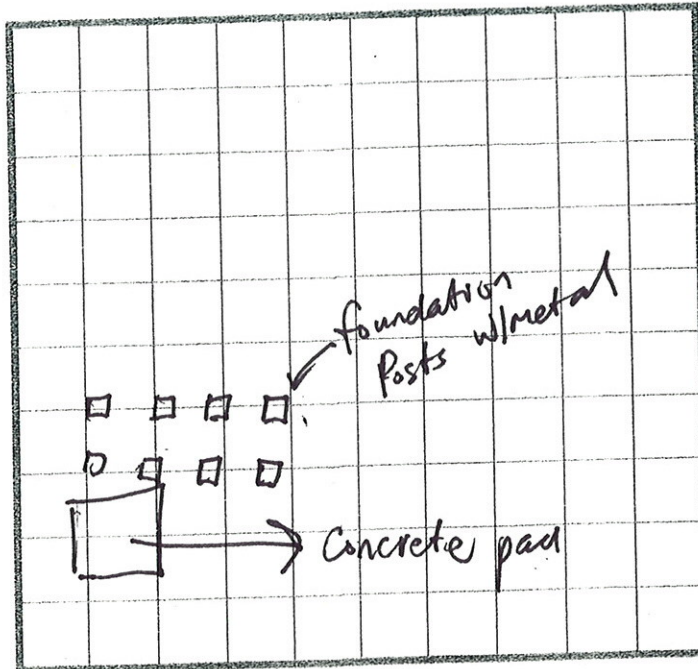 foundation
Posts w/metal
Concrete pad